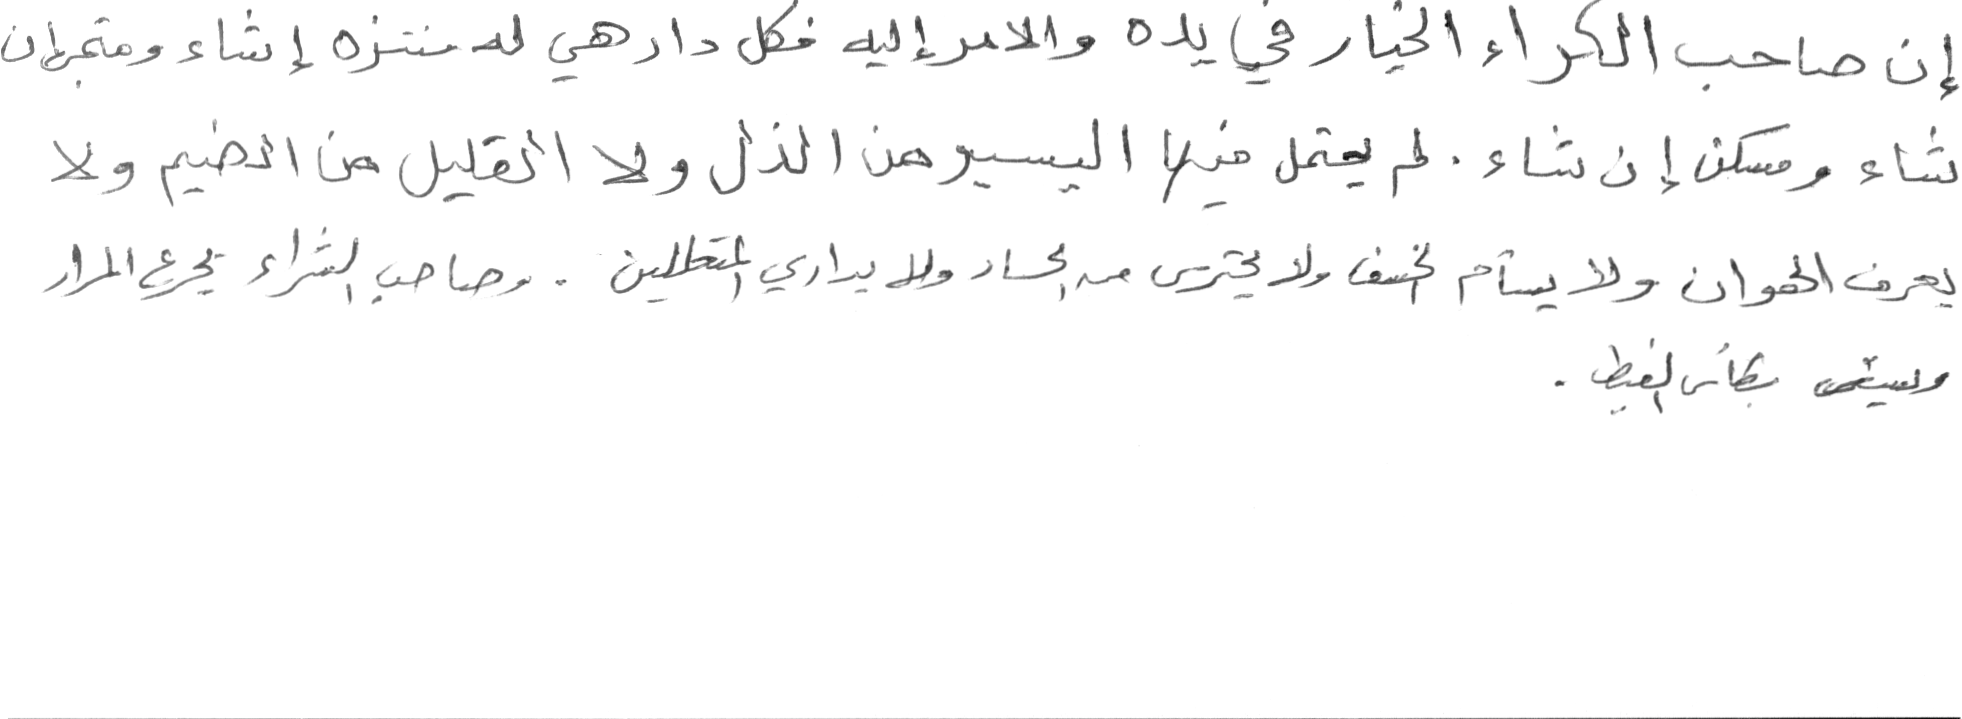 إن صاحب الكراء الخيار في يده والامر إليه فكل دار هي له منتزه إ شاء ومتجر إن
شاء ومسكن إن شاء . لم يحتمل فيها اليسير من الذل ولا القليل من الضيم ولا
يعرف الهوان ولا يسأم الخسف ولا يحترس من الحساد ولا يداري المتعللين . وصاحب الشراء يجرع المرار
ويسقى بكأس الغيظ .